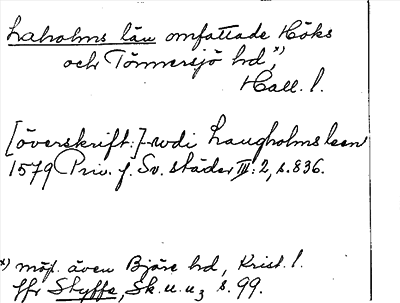 Laholms län omfattade Höks
och Tönnersjö hd,*)
Hall. l.
[överskrift:] -udi Laugholms leen
1579 Priv. f. Sv. städer III:2, s. 836.
*) möjl. även Bjäre hd, Krist. l.
jfr Styffe, Sk. u. u3 s. 99.